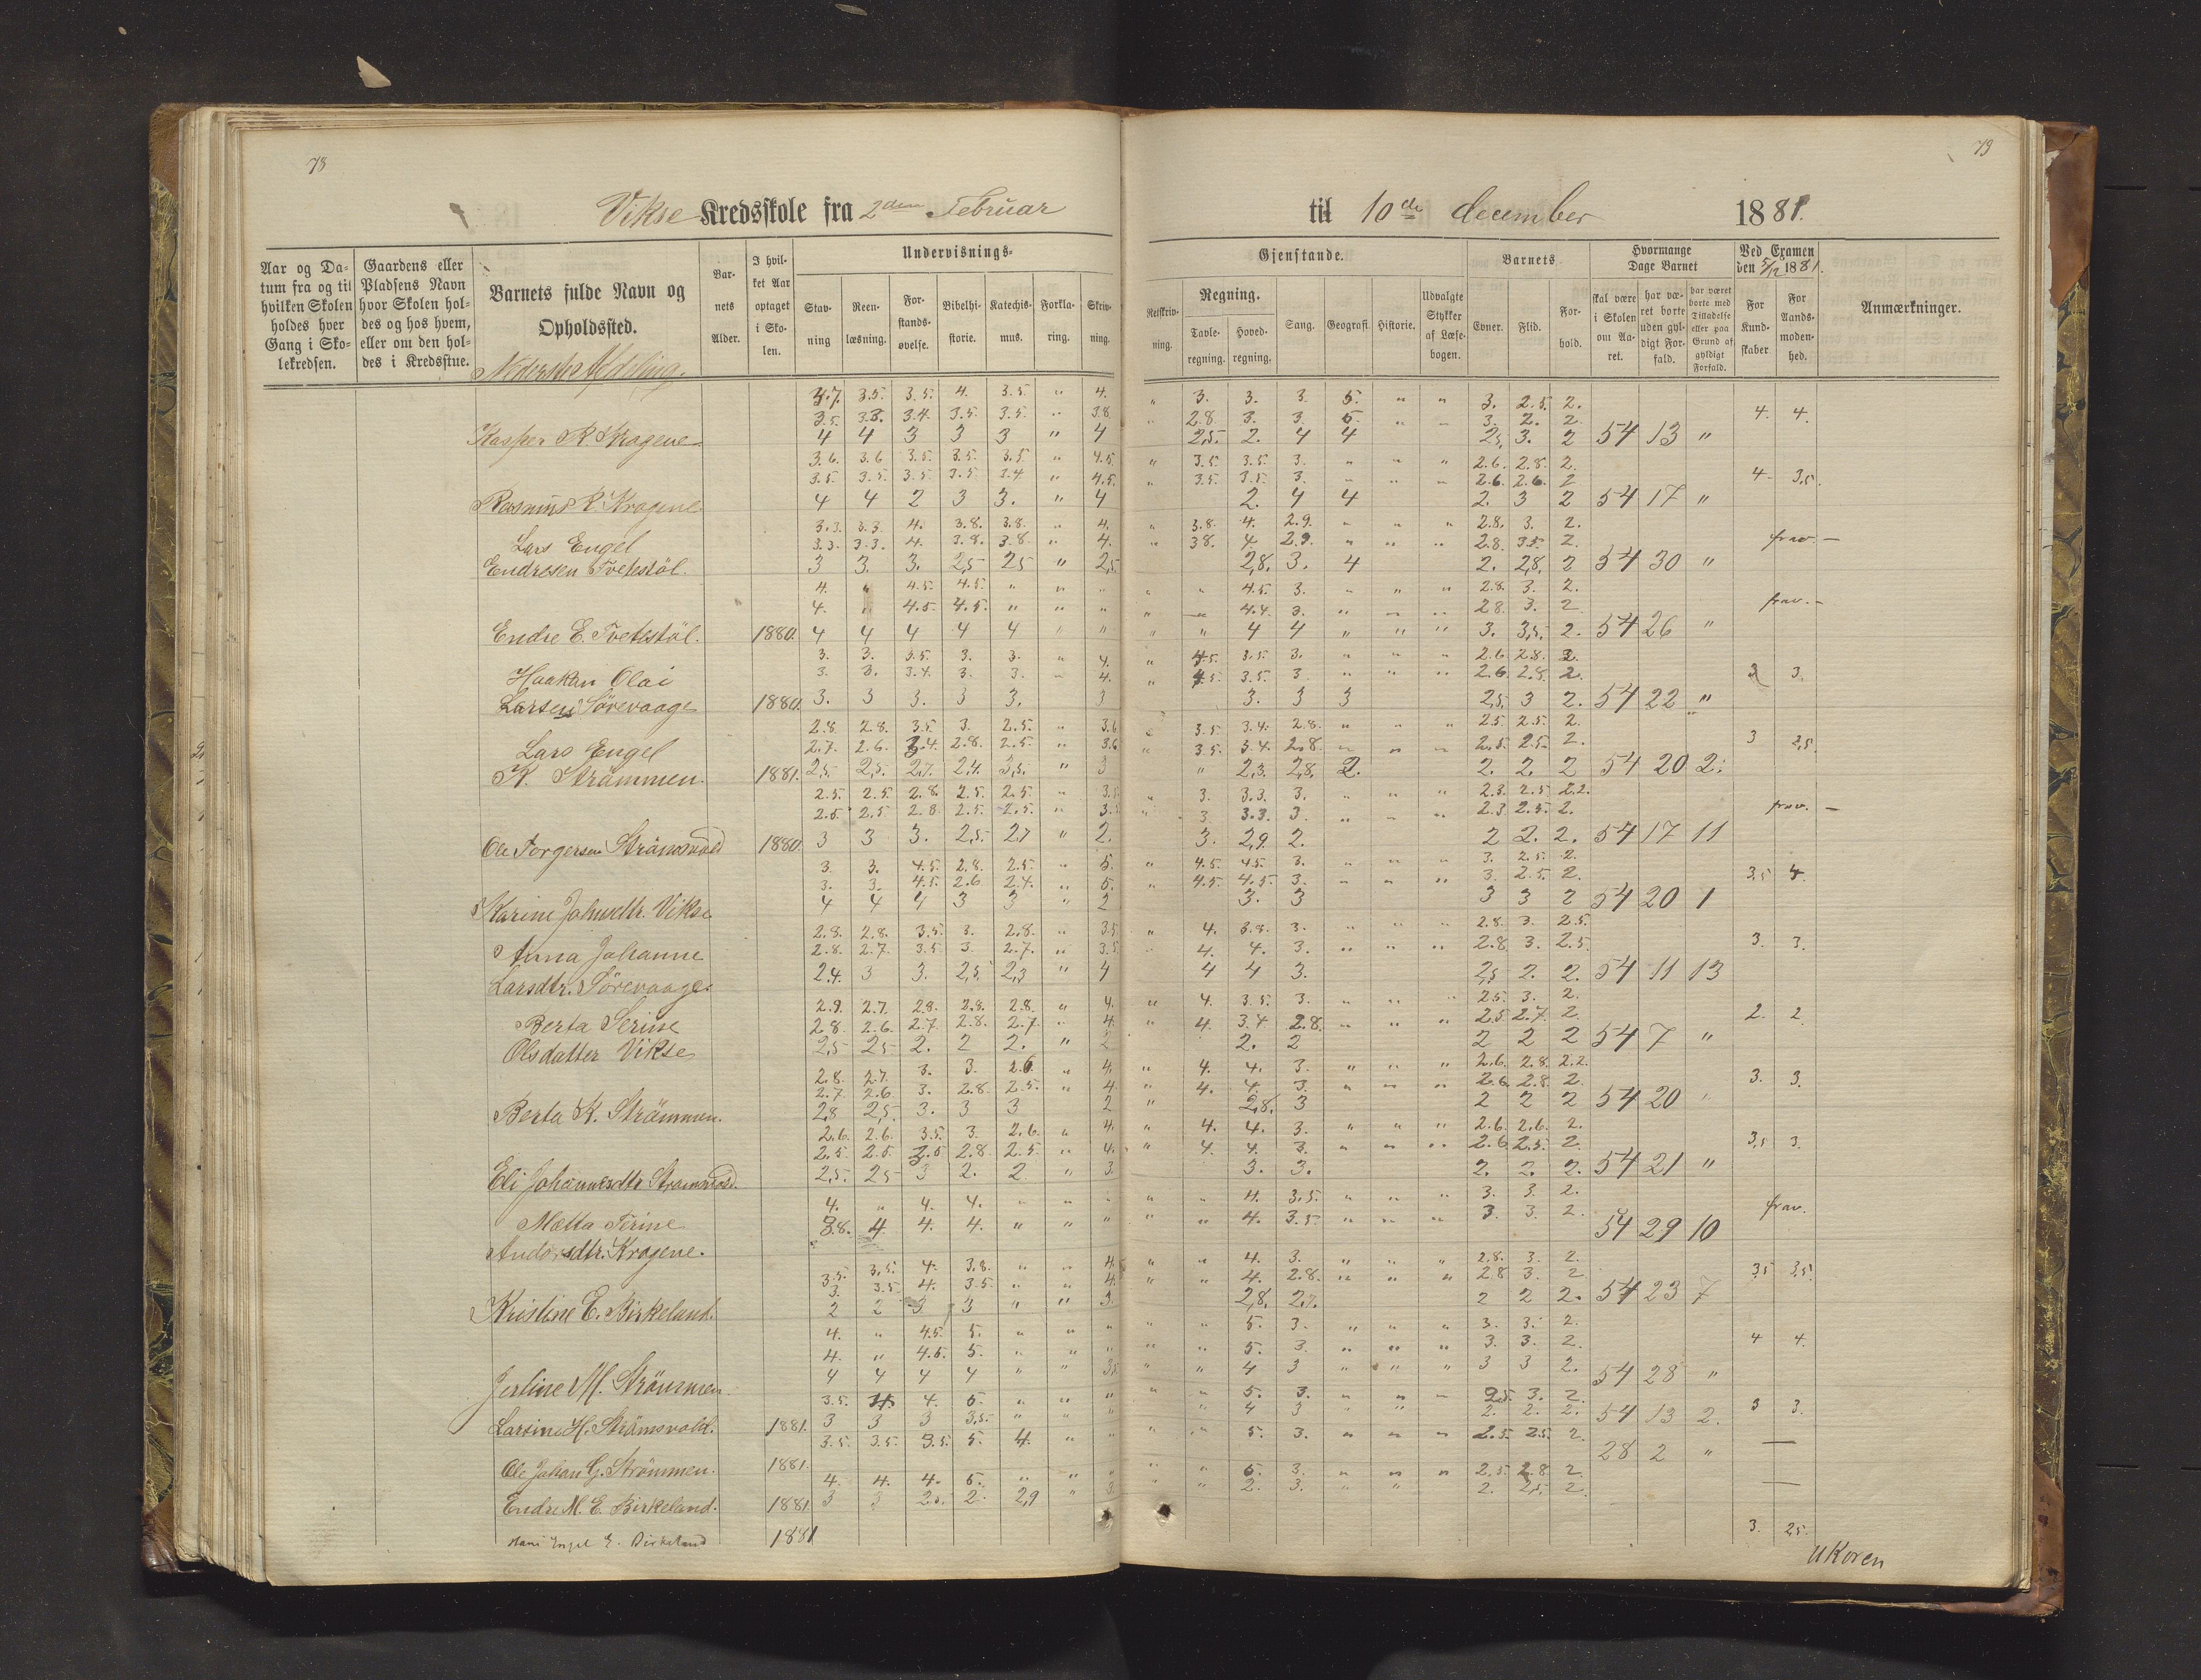 78
79
Vikse Kredsskole fra 2den Februar
til 10de december 1881.
Undervisnings-
Gjenstande.
Barnets
Hvormange Dage Barnet
Ved Examen den 5/12 1881.
Aar og Datum fra og til hvilken Skolen holdes hver Gang i Skolekredsen.
Gaardens eller Pladsens Navn hvor Skolen holdes og hos hvem, eller om den holdes i Kredsstue.
Barnets fulde Navn og Opholdssted.
Barnets Alder.
I hvilket Aar optaget i Skolen.
Stavning
Reenlæsning.
Forstandsøvelse.
Bibelhistorie.
Katechismus.
Forklaring.
Skrivning.
Retskrivning.
Regning.
Tavleregning.
Hovedregning.
Sang.
Geografi.
Historie.
Udvalgte Stykker af Læsebogen.
Evner.
Flid.
Forhold.
skal være i Skolen om Aaret.
har været borte uden gyldigt Forfald.
har været borte med Tilladelse eller paa Grund af gyldigt Forfald.
For Kundskaber
For Aandsmodenhed.
Anmærkninger.
Nederste Afdeling.
3.7. 3.5. 3.5. 4. 3.5. " 4. " 3. 3. 3. 5. " " 3. 2.5. 2.
3.5. 3.3. 3.4. 3.5. 3.5. " 3.8 " 2.8. 3. 3. 5. " " 3. 2. 2. 4. 4.
Kasper R Kragene 4 4 3 3 3 " 4 2,5. 2. 4 4 2,5, 3. 2 54 13 "
3.6. 3.6 3.5. 3.5. 3.5. " 4.5. " 3.5. 3.5. 3. " " " 2.6. 2.8. 2.
3.5. 3.5. 3.5 3.5 3.4 " 4.5. " 3.5. 3.5. 3. " " " 2.6. 2.6. 2 4 3,5.
Rasmus R. Kragene 4 4 2 3 3. " 4 2. 4 4 2. 3 2 54 17 "
3.3. 3.3. 4. 3.8. 3.8. " 4. " 3.8. 4. 2.9. " " " 2.8. 3. 2.
Lars Engel 3.3. 3.3. 4. 3.8. 3.8. " 4. " 3.8. 4 2.9. " " " 2.8. 3.5. 2. frav.—
Endresen Tvetestöl. 3 3. 3. 2,5 2,5 " 2,5. 2,8. 3. 4 2. 2,8, 2 54 30 "
4. " 4.5. 4.5. " " " " " 4.5. 3. " " " 2.8. 3. 2.
4. " 4.5. 4.5. " " " " " 4.4. 3. " " " 2.8. 3. 2 frav.—
Endre E. Tvetestöl. 1880. 4 4 4 4 4 " " " " 4 4 " " " 3. 3,5, 2. 54 26 "
3. 3. 3.5. 3. 3. " 4. " 4.5. 3.5. 3. " " " 2.6. 2.8. 2.
Haakan Olai 3. 3. 3.4. 3. 3. " 4. " 4.5. 3.5. 3 " " " 2.6. 2.8. 2. 3 3.
Larsen Sörevaage 1880. 3. 3 3. 3 3. 3 3. 3 3 2,5, 3 2. 54 22 "
2.8. 2.8. 3.5. 3. 2.5. " 3.6 " 3.5 3.4. 2.8. " " " 2.5 2.5. 2.
Lars Engel 2.7. 2.6. 3.4. 2.8. 2.5. " 3.6 " 3.5. 3.4. 2.8. " " " 2.5. 2.5. 2. 3 2,5.
K. Strämmen. 1881. 2,5. 2,5. 2,7. 2,4. 3,5. " 3 " 2,3. 2,8. 2. 2. 2. 2 54 20 2.
2.5. 2.5. 2.8. 2.5. 2.5. " 3.5 " 3. 3.3. 3. " " " 2.3. 2.5 2.2.
2.5. 2.5 2.8 2.5. 2.5. " 3.5 " 3. 3.3. 3. " " " 2.3 2.5. 2. frav. —
Ole Torgersen Strämsvold 1880. 3 3 3. 2,5. 2,7 " 2. 3. 2,9. 2. 2 2. 2. 54 17 11
3 3. 4.5. 2.8. 2.5. " 5. " 4.5. 4.5. 3. " " " 3. 2.5. 2.
3. 3. 4.5. 2.6 2.4. " 5. " 4.5. 4.5. 3. " " " 3. 2.5. 2. 3,5 4.
Karine Johnsdtr. Vikse. 4 4 4 3 3 " 2 3. 3 3 3 2 54 20 1
2.8. 2.8. 3.5. 3. 2.8. " 3.5 " 4. 3.8. 3. " " " 2.8. 3. 2.5.
Anna Johanne 2.8. 2.7. 3.5 3 2.7. " 3.5 " 4. 4. 3. " " " 2.8 3. 2.5. 3. 3.
Larsdtr. Sörevaage. 2.4. 3 3. 2,5. 2,3 " 4 4 4 3. 2,5 2. 2. 54 11 13
2.9. 2.7. 2.8. 2.8. 2.8. " 4. " 4. 3.5. 3. " " " 2.5. 3. 2.
Berta Serine 2.8. 2.6. 2.7. 2.8. 2.7. " 4. " 4. 3.4 2.8. " " " 2.5 2.7. 2. 2. 2.
Olsdatter Vikse 2,5 2,5 2. 2 2. " 2 2. 2 2 2 2 54 7 "
2.8. 2.7. 3. 3. 2.6 " 4. " 4. 4. 3. " " " 2.6. 2.8. 2.2.
2.7. 2.6. 3. 2.8. 2.5. " 4. " 4. 4. 3. " " " 2.6. 2.8. 2. 3. 3.
Berta K. Strämmen. 2,8 2,5. 3. 3 3 2 " 2,8. 3 2 2 2 54 20 "
2.6. 2.6. 3.5. 3. 2.6. " 4. " 4. 4. 3. " " " 2.6. 2.6. 2.
2.5. 2.5. 3.5 2.8. 2.5. " 4. " 4. 4. 3. " " " 2.6. 2.5. 2. 3,5 3.
Eli Johannesdtr Stramsvold. 2,5. 2,5 3 2. 2 " 3. 3. 3. 2. 2. 2. 54 21 "
4. " 4. 4. " " " " " 4. 3.5. " " " 3. 3. 2.
Mætta Serine 3.8. 4 4. 4. " " " " " 4. 3.5. " " " 3. 3. 2. frav.
Andersdtr. Kragene. 54 29 10
3.5. 3.5. 4. 3.8. " " 4. " " 4. 3. " " " 2.8. 3. 2.
3. 3.5 4. 3.5 " " 4. " " 4. 2.8. " " " 2.8 3. 2 3,5 3,5.
Kristine E. Birkeland. 2 2 3 3 " " 3. 2,8. 2,7. 2 2 2. 54 23 7
4. " 4.5. 5. " " " " " 5. 3. " " " 3. 3. 2.
4. " 4.5. 5. " " " " " 5. 3. " " " 3. 3. 2. 4 4.
Jertine M. Strömmen. 4 4 4 4 " " 3,5. " " 4 3 " " " 3 3 2. 54 28 "
3.5. 4. 4. 5. " " " " " 5. 3. " " " 2.5. 3. 2.
Larsine H. Strämsvold. 1881. 3 3 3 3,5. " " " " 4 3 " " 2. 2. 2. 54 13 2. 3 3.
3.5. 3.5. 3.5. 5. 4. " " " " 5. 3. " " " 2.5. 2.5. 2.
Ole Johan G. Strömmen. 1881. 28 2 " —
4. 4. 4. 5. " " " " " 5. 3. " " " 2.5. 2.8. 2.
Endre M. E. Birkeland. 1881 3 3 2,5. 2. 2,9 " 3. " " 2. 3. " " 2. 2,5 2. —
Hans Engel E. Birkeland 1881 3. 2,5.
U Koren